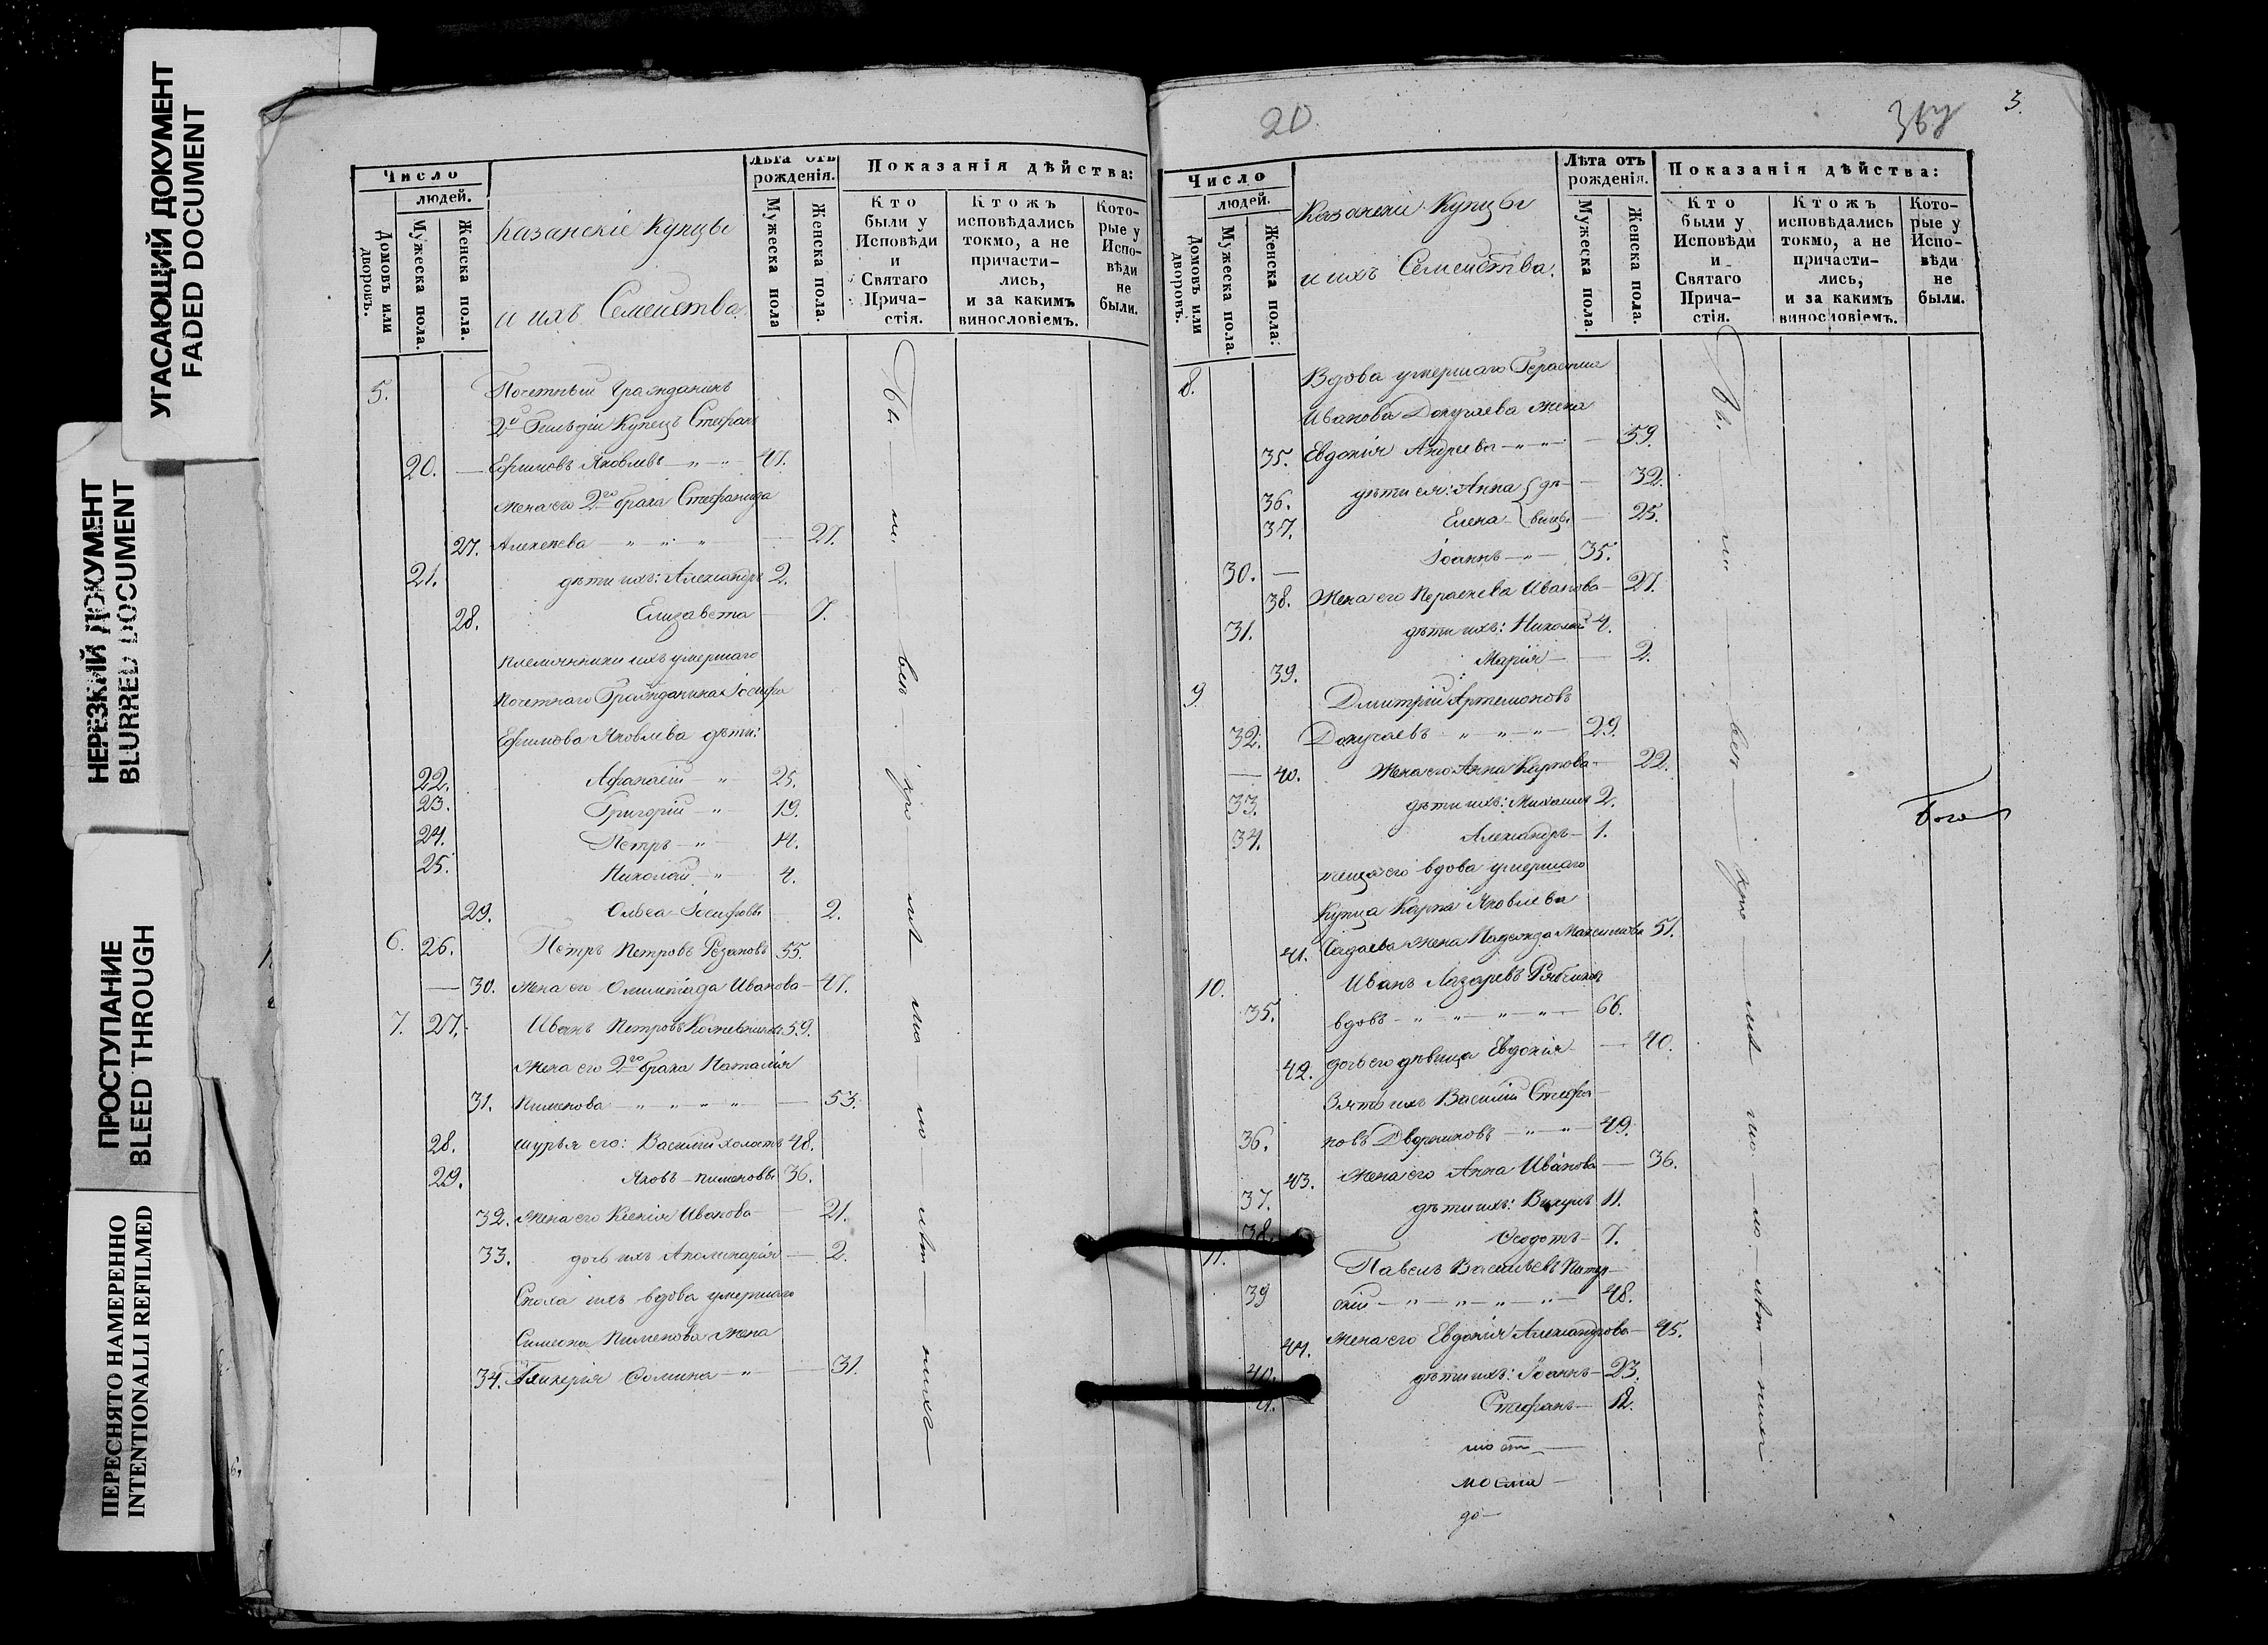 УГАСАЮЩИЙ ДОКУМЕНТ
FADED DOCUMENT
НЕРЕЗКИЙ ДОКУМЕНТ
BLURRED DOCUMENT
ПРОСТУПАНИЕ
BLEED THROUGH
ПЕРЕСНЯТО НАМЕРЕННО
INTENTIONALLI REFILMED
Число
людей.
Домовъ или дворовъ.
Мужеска пола.
Женска пола.
Казанскіе Купцы
и ихъ Семейства.
Лѣта отъ рожденія.
Мужеска пола
Женска пола.
Показанія дѣйства:
Кто были у Исповѣди и Святаго Прича-стія.
Ктожъ исповѣдались токмо, а не причасти-лись, и за какимъ винословіемъ.
Кото-рые у Испо-вѣди не были.
5. Почетный Гражданинъ
2й Гильдіи Купецъ Стефанъ
20. — Ефимовъ Яковлевъ — " — " — 47.
Жена его 2го брака Стефанида
27. Алексѣева — " — " — " — 27.
21. дѣти ихъ: Александръ 2.
28. Елизавета — 7.
племянники ихъ умершаго
Почетнаго Гражданина Іосифа
Ефимова Яковлева дѣти:
22. Афанасій — " — 25.
23. Григорій — " — 19.
24. Петръ — " — 14.
25. Николай — " — 4.
29. Ольга Іосифовы 2.
6. 26. Петръ Петровъ Рѣзановъ 55.
— 30. Жена его Олимпіада Иванова — 47.
7. 27. Иванъ Петровъ Кожевниковъ 59.
Жена его 2го брака Наталія
31. Пименова — " — " — " — " — 53.
28. шурья его: Василій холостъ 48.
29. Яковъ — Пименовы 36.
32. Жена его Ксенія Иванова — 21.
33. дочь ихъ Аполинарія — 2.
Сноха ихъ вдова умершаго
Симеона Пименова Жена
34. Гликерія Ѳомина — " — 31.
20
3
Число
людей.
Домовъ или дворовъ.
Мужеска пола.
Женска пола.
Казанскіе Купцы
и ихъ Семейства.
Лѣта отъ рожденія.
Мужеска пола.
Женска пола.
Показанія дѣйства:
Кто были у Исповѣди и Святаго Прича-стія.
Ктожъ исповѣдались токмо, а не причасти-лись, и за какимъ винословіемъ.
Кото-рые у Испо-вѣди не были.
8. Вдова умершаго Герасима
Иванова Докучаева жена
35. Евдокія Андреева — " — " — 59.
36. дѣти ея: Анна { дѣ — 32.
37. Елена { вицы — 25.
30. — Іоаннъ — " — 35.
38. Жена его Параскева Иванова — 27.
31. дѣти ихъ: Николай 4.
39. Марія — 2.
9 Дмитрій Артемоновъ
32. Докучаевъ — " — " — " — 29.
— 40. Жена его Анна Карпова — 22.
33. дѣти ихъ: Михаилъ 2.
34. Александръ — 1.
теща его вдова умершаго
Купца Карпа Яковлева
41. Чадаева жена Надежда Максимова 51.
10. Иванъ Лазаревъ
35. вдовъ — " — " — " — " — 66.
42. дочь его дѣвица Евдокія — 40.
Зять ихъ Василій Стефа-
36. новъ Дворниковъ — " — " — 49.
43. Жена его Анна Иванова — 36.
37. дѣти ихъ: 11.
38. Ѳеодотъ — 7.
11. Павелъ Васильевъ
39 скій — " — " — " — " — 48.
44. Жена его Евдокія Александрова — 45.
40. дѣти ихъ: Іоаннъ — 23.
41. Стефанъ — 12.